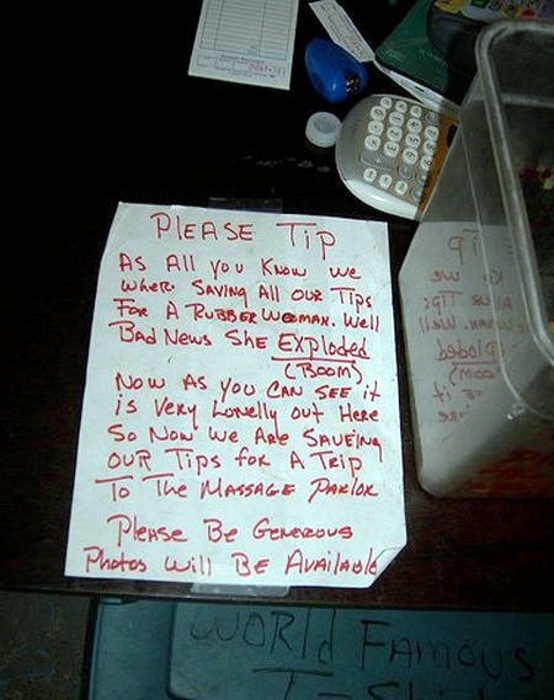 PLEASE TIP
AS All you KNOW WE
WHERE SAVING All OUR TIPS
FOR A RUBBER WOMAN. Well
BAD NEWS SHE EXPLODED
(BOOM)
NOW AS YOU CAN SEE it
is VERY LONELLY OUT HERE
SO NOW WE ARE SAVEING
OUR TIPS FOR A TRIP
TO THE MASSAGE PARLOR
PLEASE BE GENEROUS
Photos Will BE AVAilAble
WORLD FAMOUS